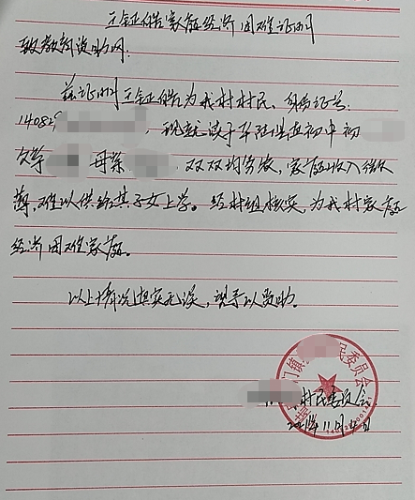 王钲皓家庭经济困难证明
致教育资助网:
兹证明王钲皓为我村村民,身份证号:
14082,现就读于平陆县直初中初
父亲 母亲 双双均务农,家庭收入微
薄,难以供给其子女上学。经村组核实,为我村家庭
经济困难家庭。
以上情况想实无误,望予以资助。
门镇 民委员会
村民委员会
2021年11月